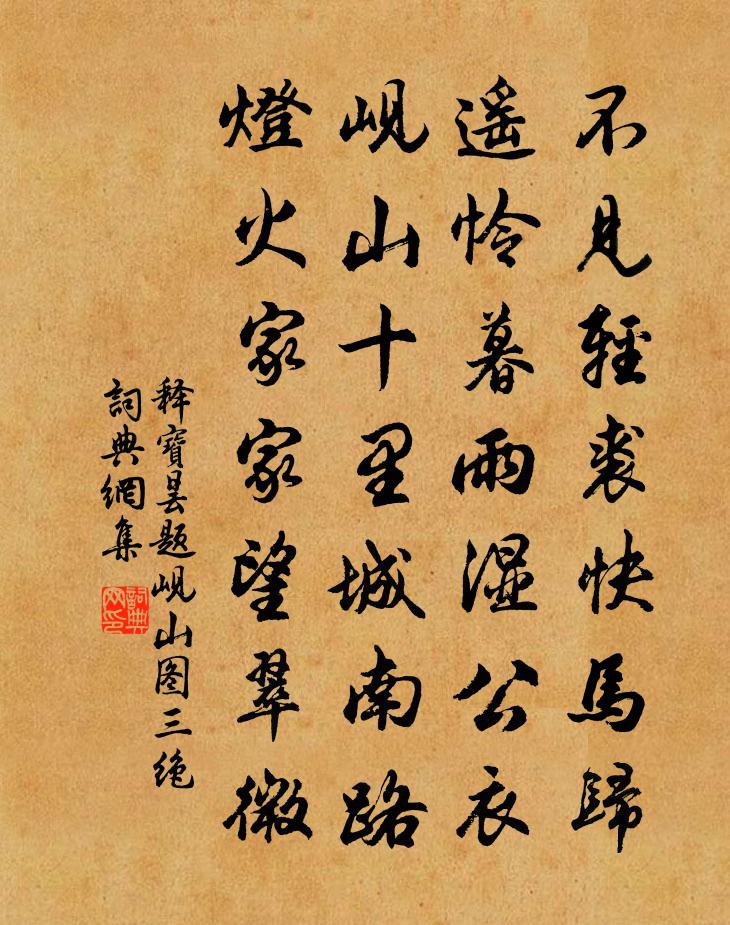 不見輕裘快馬歸
遥憐暮雨濕公衣
峴山十里城南路
燈火家家望翠微
释寶曇题峴山图三绝
詞典網集
詞典網印